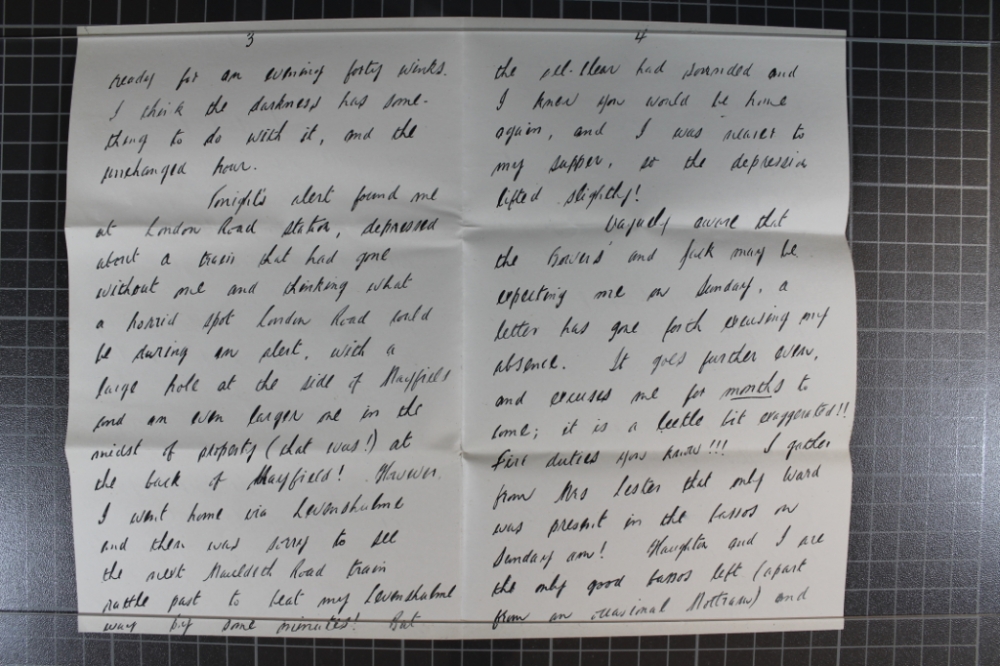 3
ready for an evening forty winks.
I think the darkness has some-
thing to do with it, and the
unchanged hour.
Tonight's alert found me
at London Road station, depressed
about a train that had gone
without me and thinking what
a horrid spot London Road could
be during an alert, with a
large hole at the side of Mayfield
and an even larger one in the
midst of property (that was!) at
the back of Mayfield! However
I went home via Levenshulme
and then was sorry to see
the next Mauldeth Road train
rattle past to beat my Levenshulme
way by some minutes! But
4
the all-clear had sounded and
I knew you would be home
again, and I was nearer to
my supper, so the depression
lifted slightly!
Vaguely aware that
the Gowers' and Jack may be
expecting me on Sunday, a
letter has gone forth excusing my
absence. It goes further even,
and excuses me for months to
come; it is a leetle bit exaggerated!!
Fire duties you know!!! I gather
from Mrs Lester that only Ward
was present in the basses on
Sunday am! Haughton and I are
the only good basses left (apart
from an occasional Mottram) and